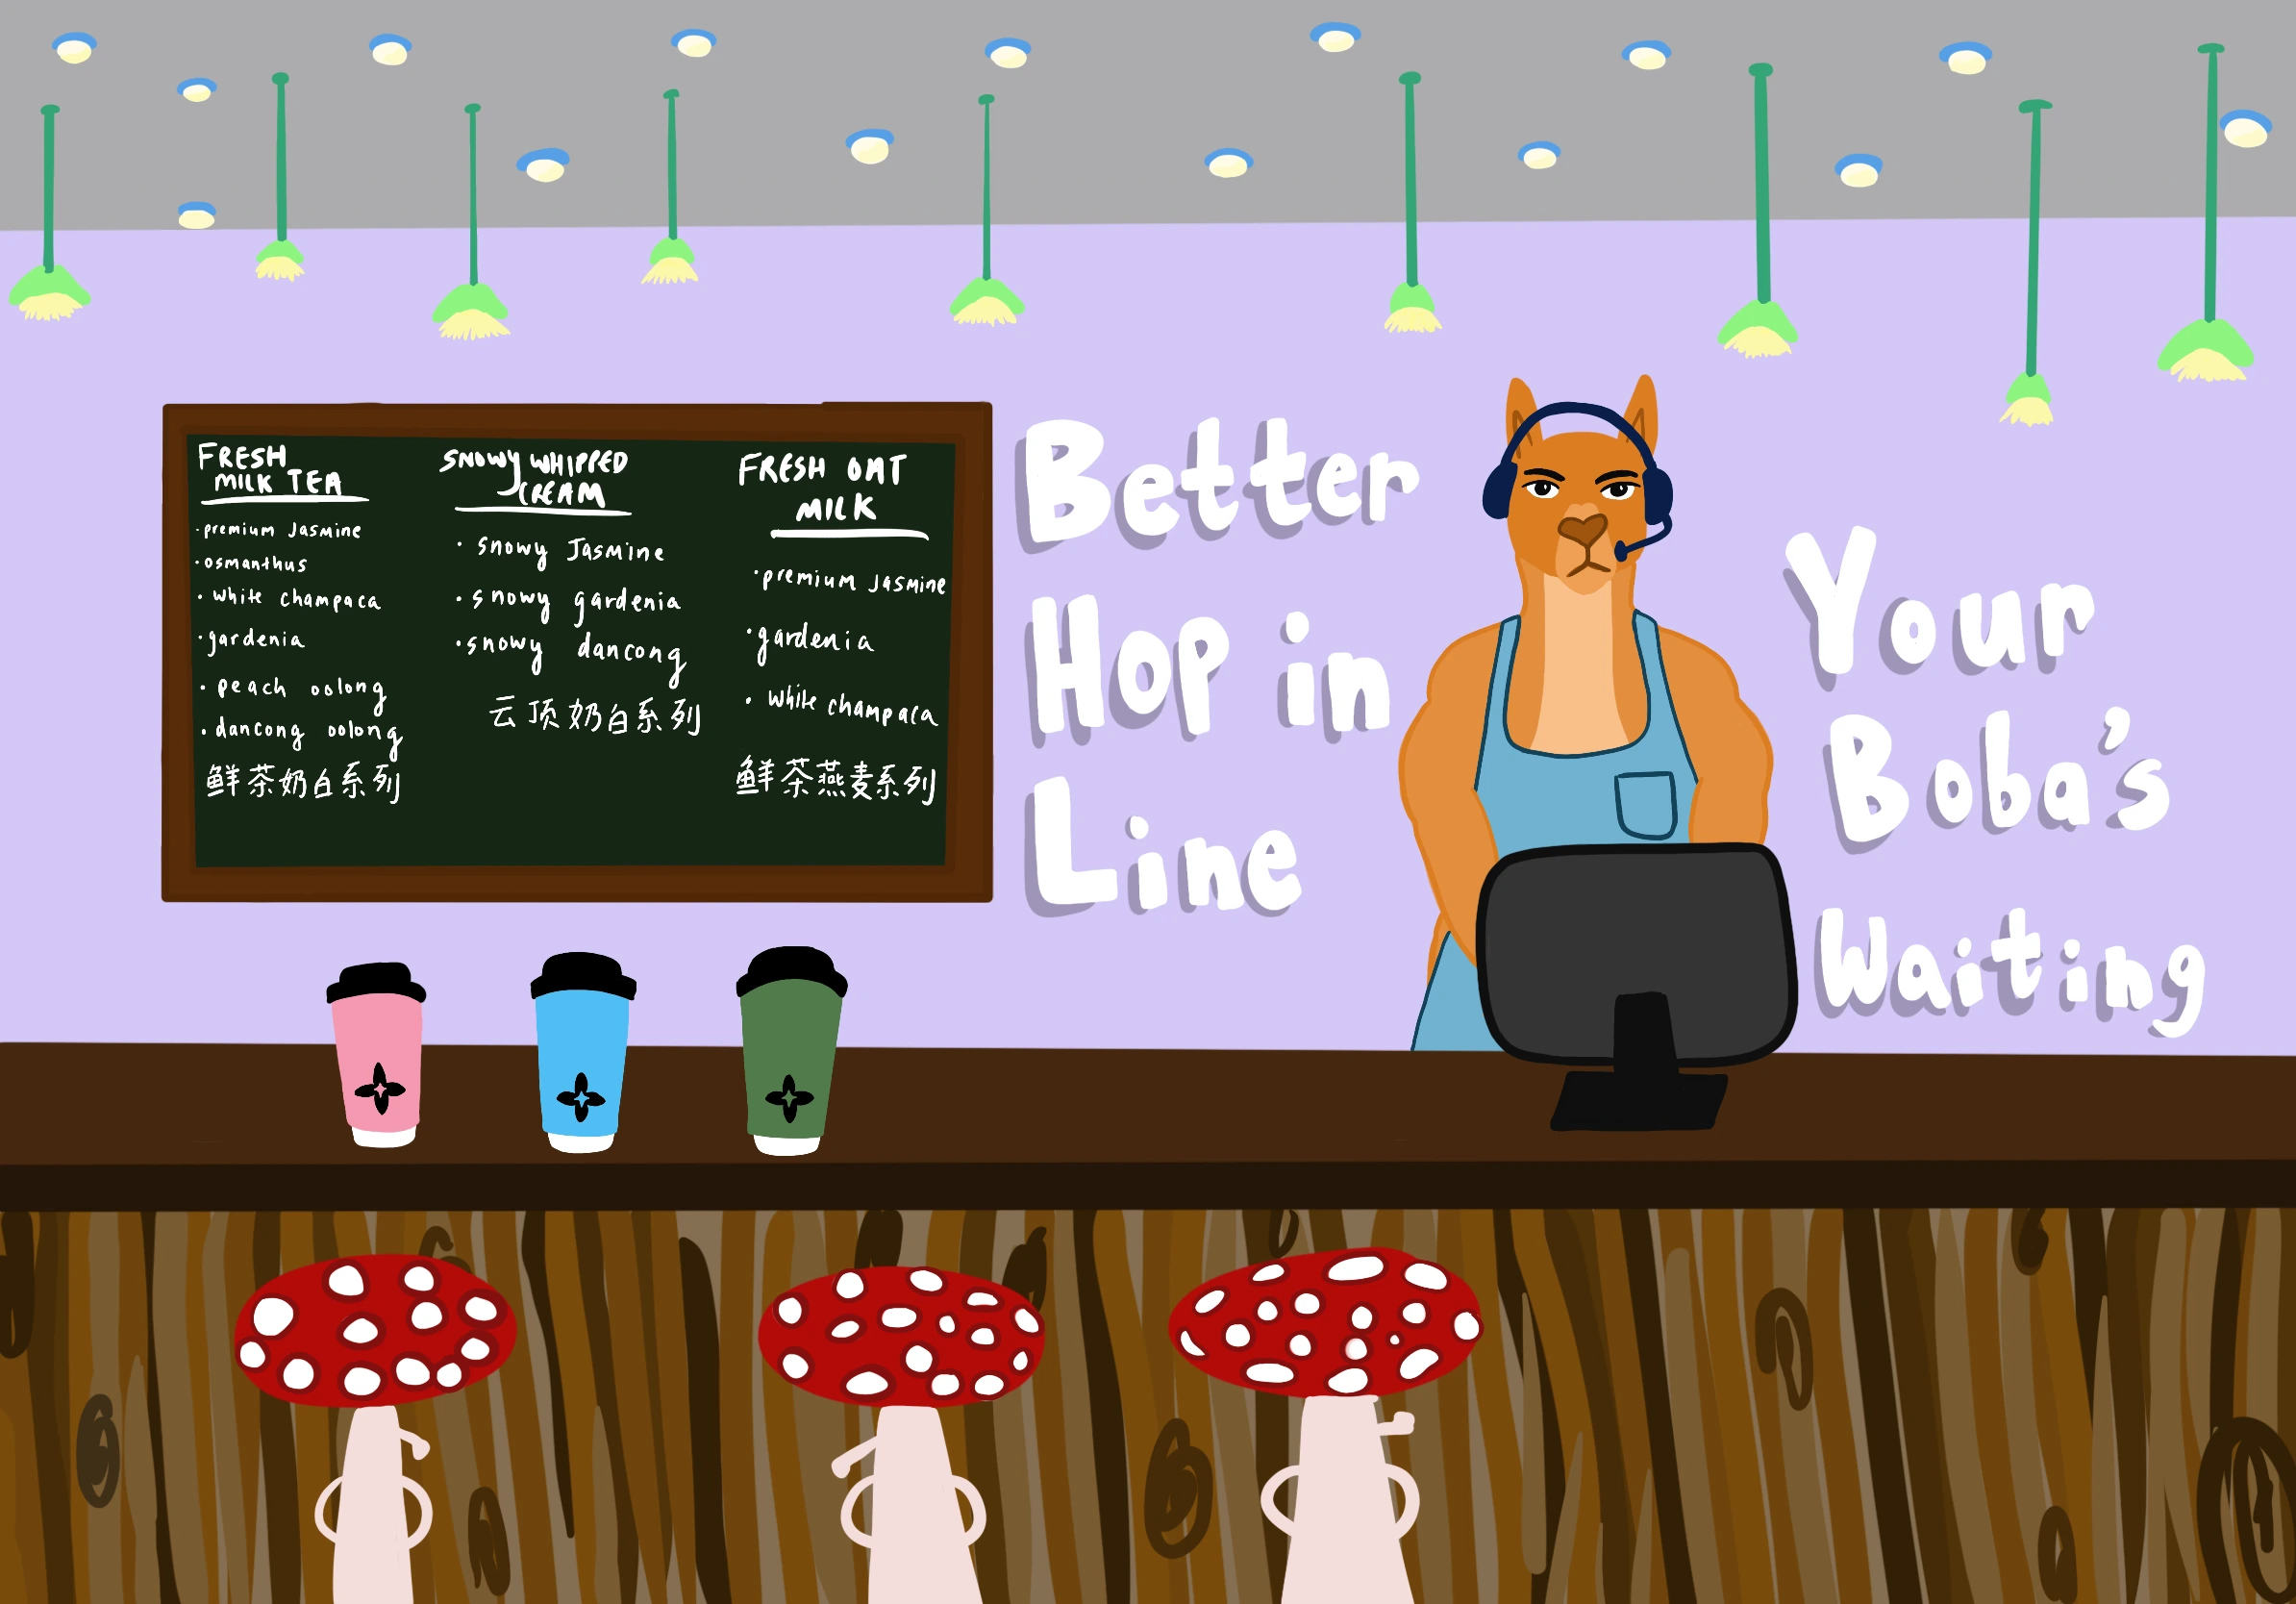 FRESH
MILK TEA
· premium Jasmine
· osmanthus
· white champaca
· gardenia
· peach oolong
· dancong oolong
鲜茶奶白系列
SNOWY WHIPPED
CREAM
· snowy Jasmine
· snowy gardenia
· snowy dancong
云顶奶白系列
FRESH OAT
MILK
· premium Jasmine
· gardenia
· white champaca
鲜茶燕麦系列
Better
Hop in
Line
Your
Boba's
Waiting